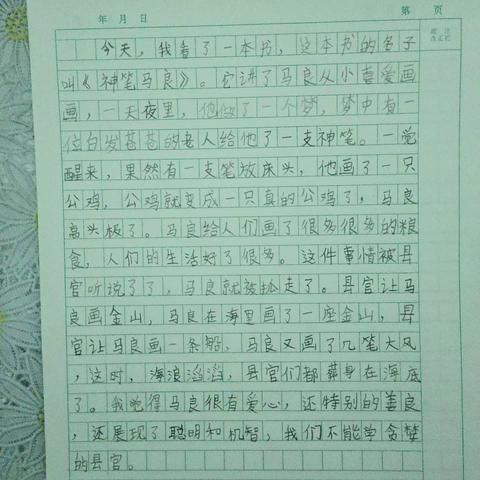 年 月 日
第 页
今天，我看了一本书，这本书的名子
叫《神笔马良》。它讲了马良从小喜爱画
画，一天夜里，他做了一个梦，梦中有一
位白发苍苍的老人给他了一支神笔。一觉
醒来，果然有一支笔放床头，他画了一只
公鸡，公鸡就变成一只真的公鸡了，马良
高头极了。马良给人们画了很多很多的粮
食，人们的生活好了很多。这件事情被县
官听说了了，马良就被抓走了。县官让马
良画金山，马良在海里画了一座金山，县
官让马良画一条船，马良又画了几笔大风
，这时，海浪滔滔，县官们都葬身在海底
了。我觉得马良很有爱心，还特别的善良
，还展现了聪明和机智，我们不能学贪婪
的县官。